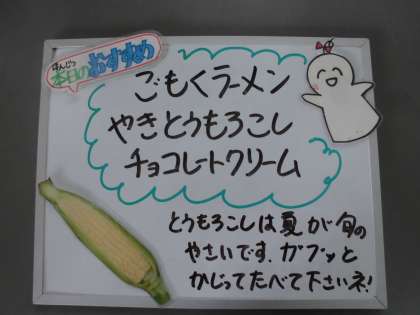 ほんじつ
本日のおすすめ
ごもくラーメン
やきとうもろこし
チョコレートクリーム
とうもろこしは夏が旬の
やさいです。ガブッと
かじってたべて下さいネ!